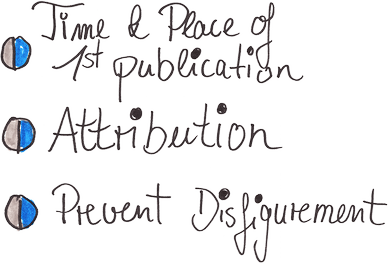 Time & Place of
1st publication
Attribution
Prevent Disfigurement